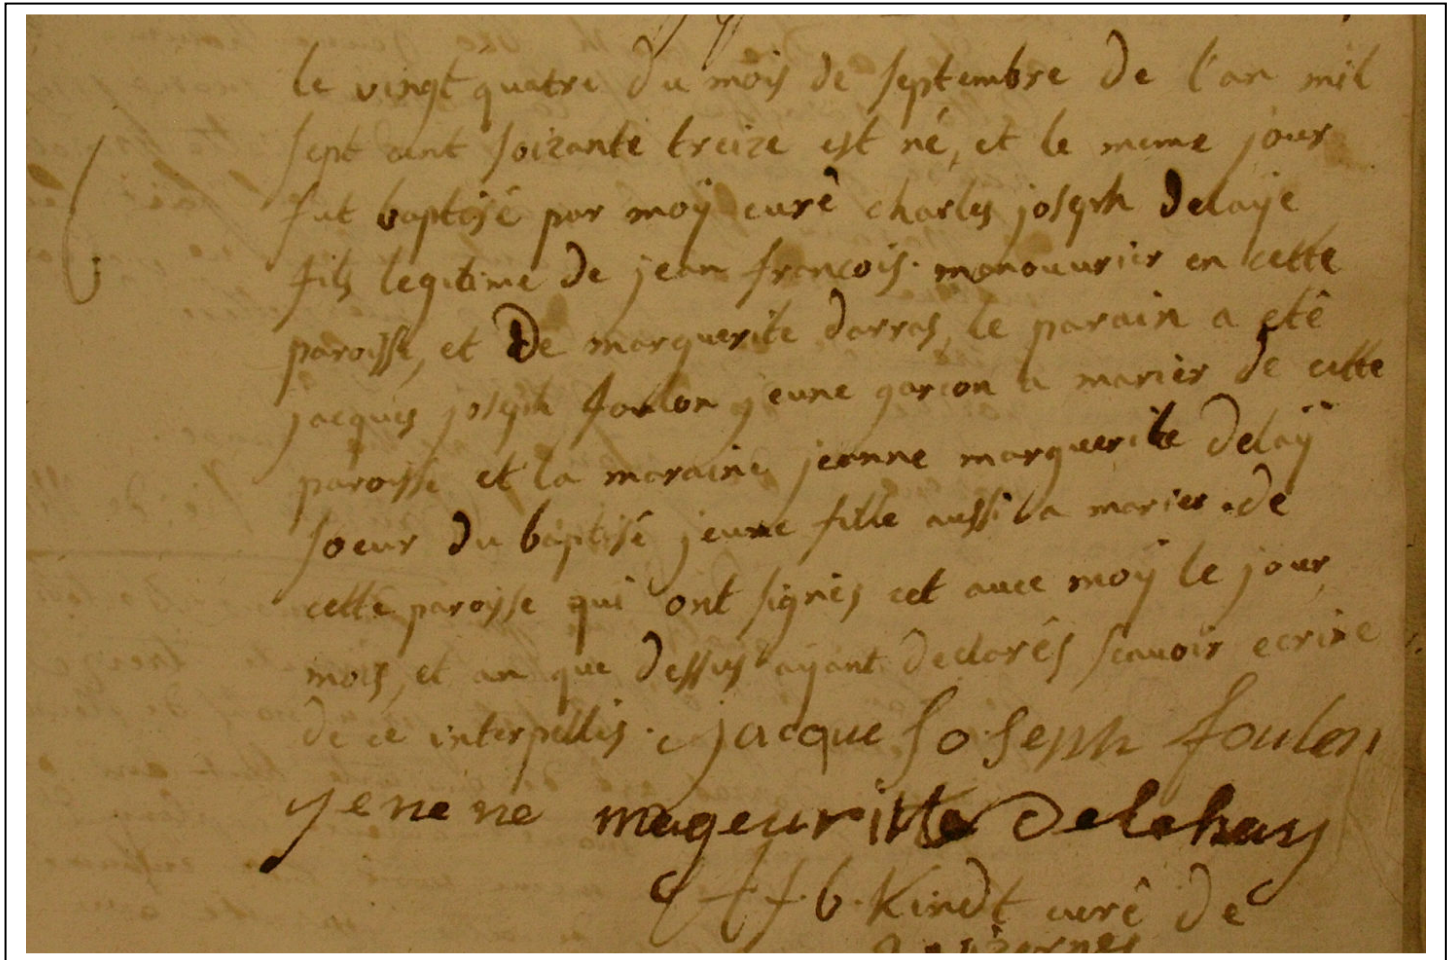 le vingt quatre du mois de septembre de l'an mil
sept cent soizante treize est né, et le meme jour
fut baptisé par moÿ curê charles joseph delaÿe
fils legitime de jean francois manouurier en cette
paroisse, et De marguerite darras, le parain a etê
jacques joseph foulon jeune garcon a marier de cette
paroisse et la maraine jeanne marguerite delaÿ
soeur du baptisé jeune fille aussi a marier de
cette paroisse qui ont signés cet auec moÿ le jour
mois, et an que dessus ayant declarês scauoir ecrire
de ce interpellés. jacque Joseph foulon
jenene mageuritte delehay
f. b. Kindt curê de